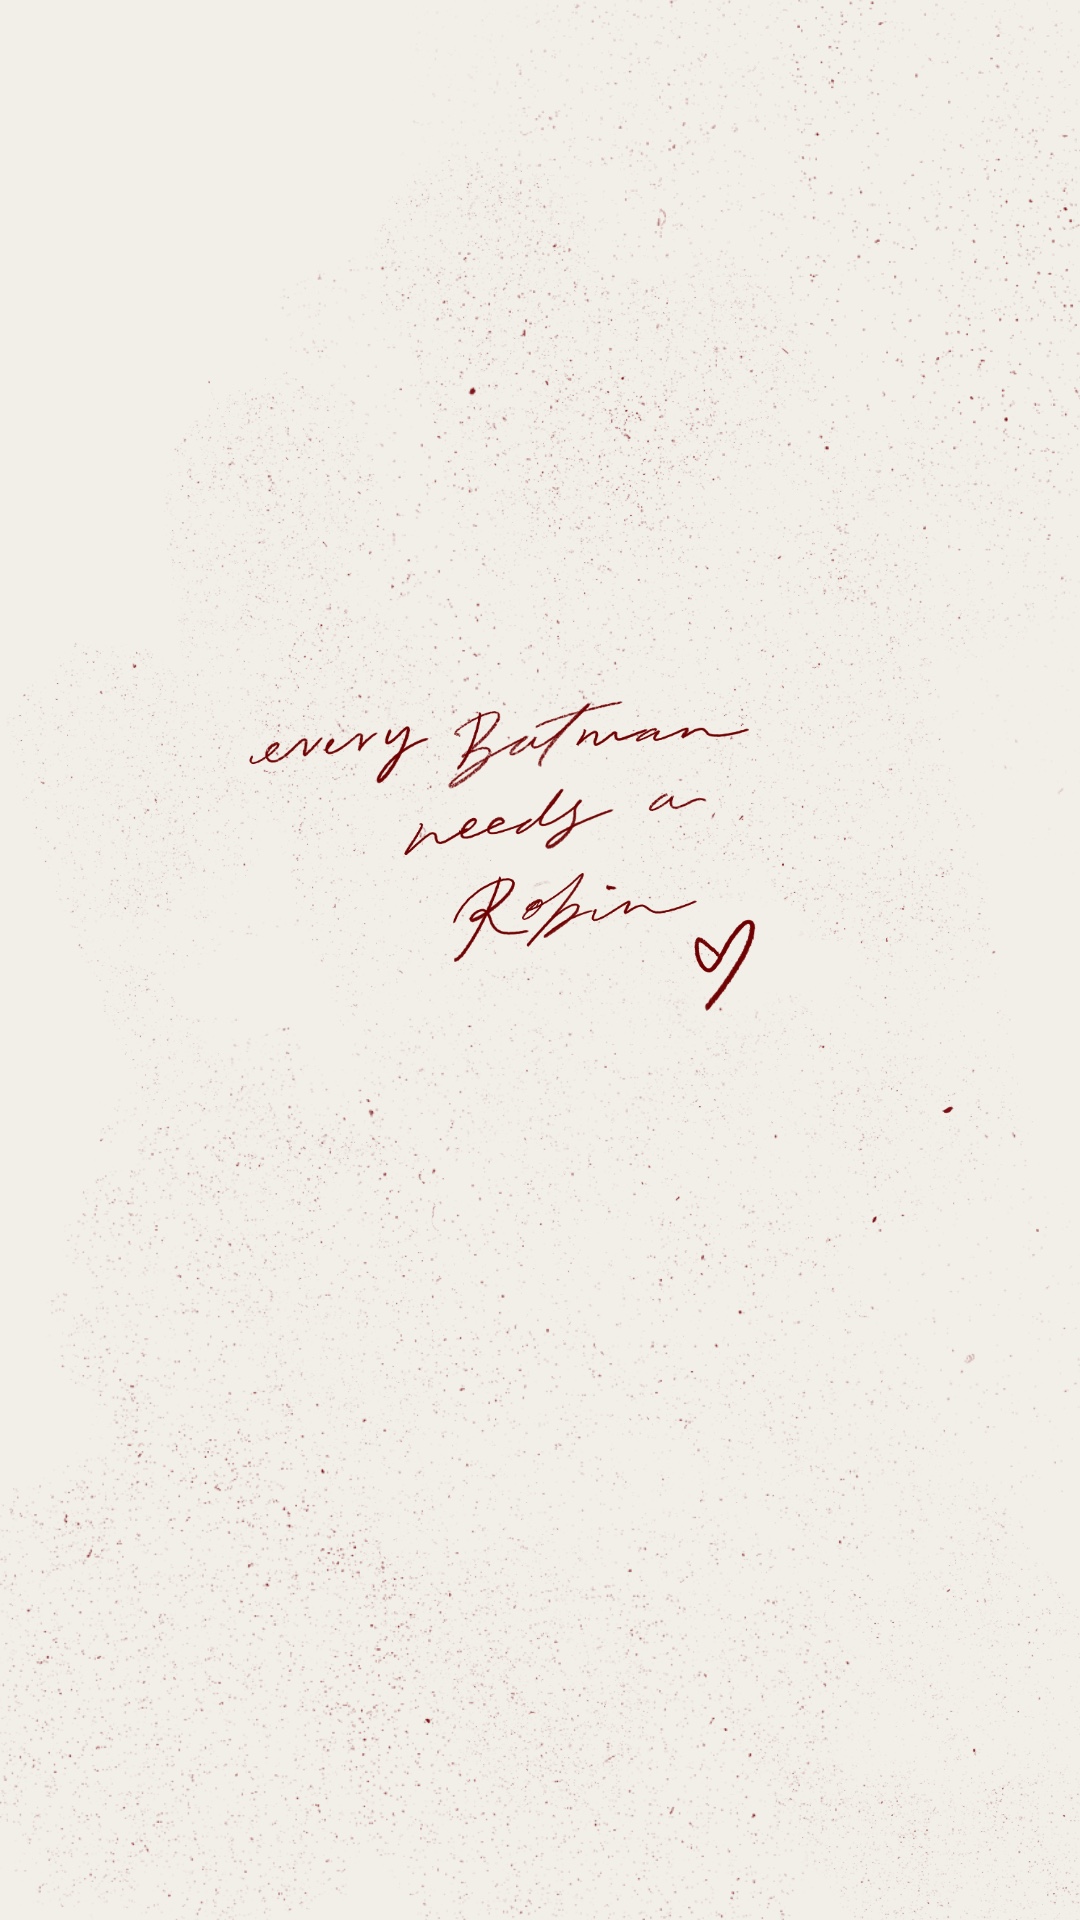 every Batman
needs a
Robin